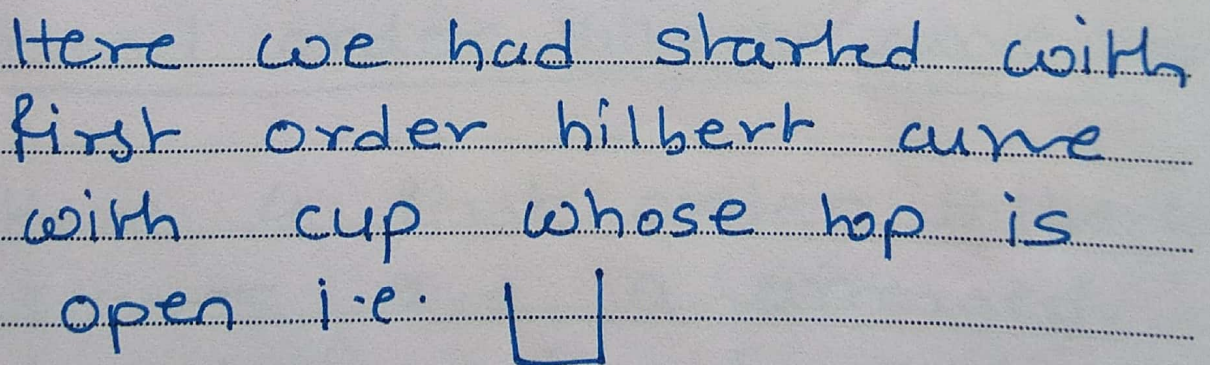 Here we had started with
first order hilbert curve
with cup whose top is
open i.e.